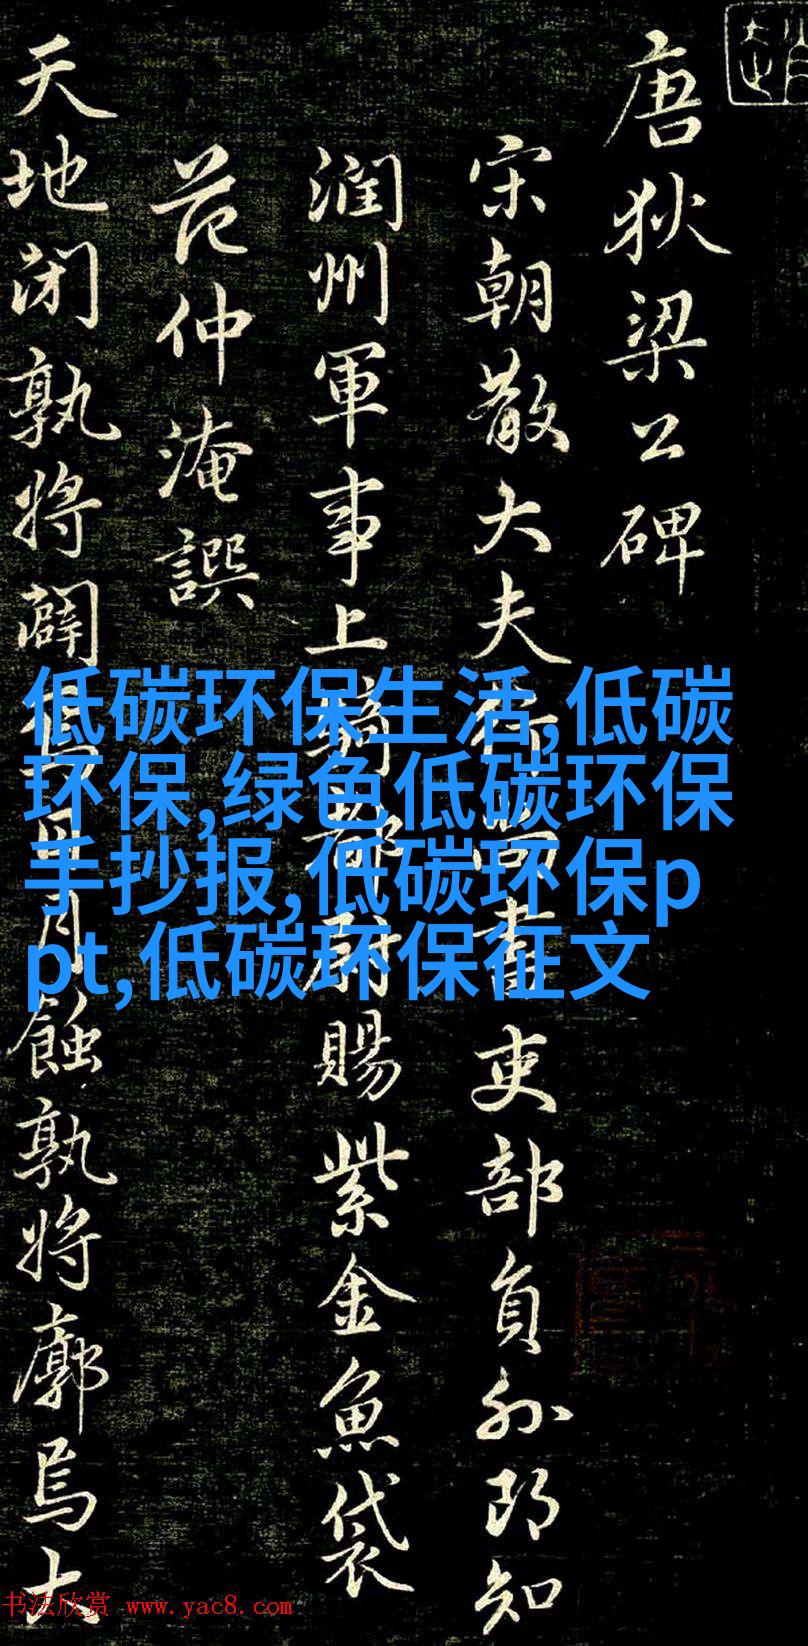 唐狄梁公碑
宋朝散大夫行尚書吏部員外郎知
潤州軍事上騎都尉賜紫金魚袋
范仲淹譔
天地閉孰將闢焉日月蝕孰將廓焉大
低碳环保生活,低碳
环保,绿色低碳环保
手抄报,低碳环保p
pt,低碳环保征文
书法欣赏 www.yac8.com